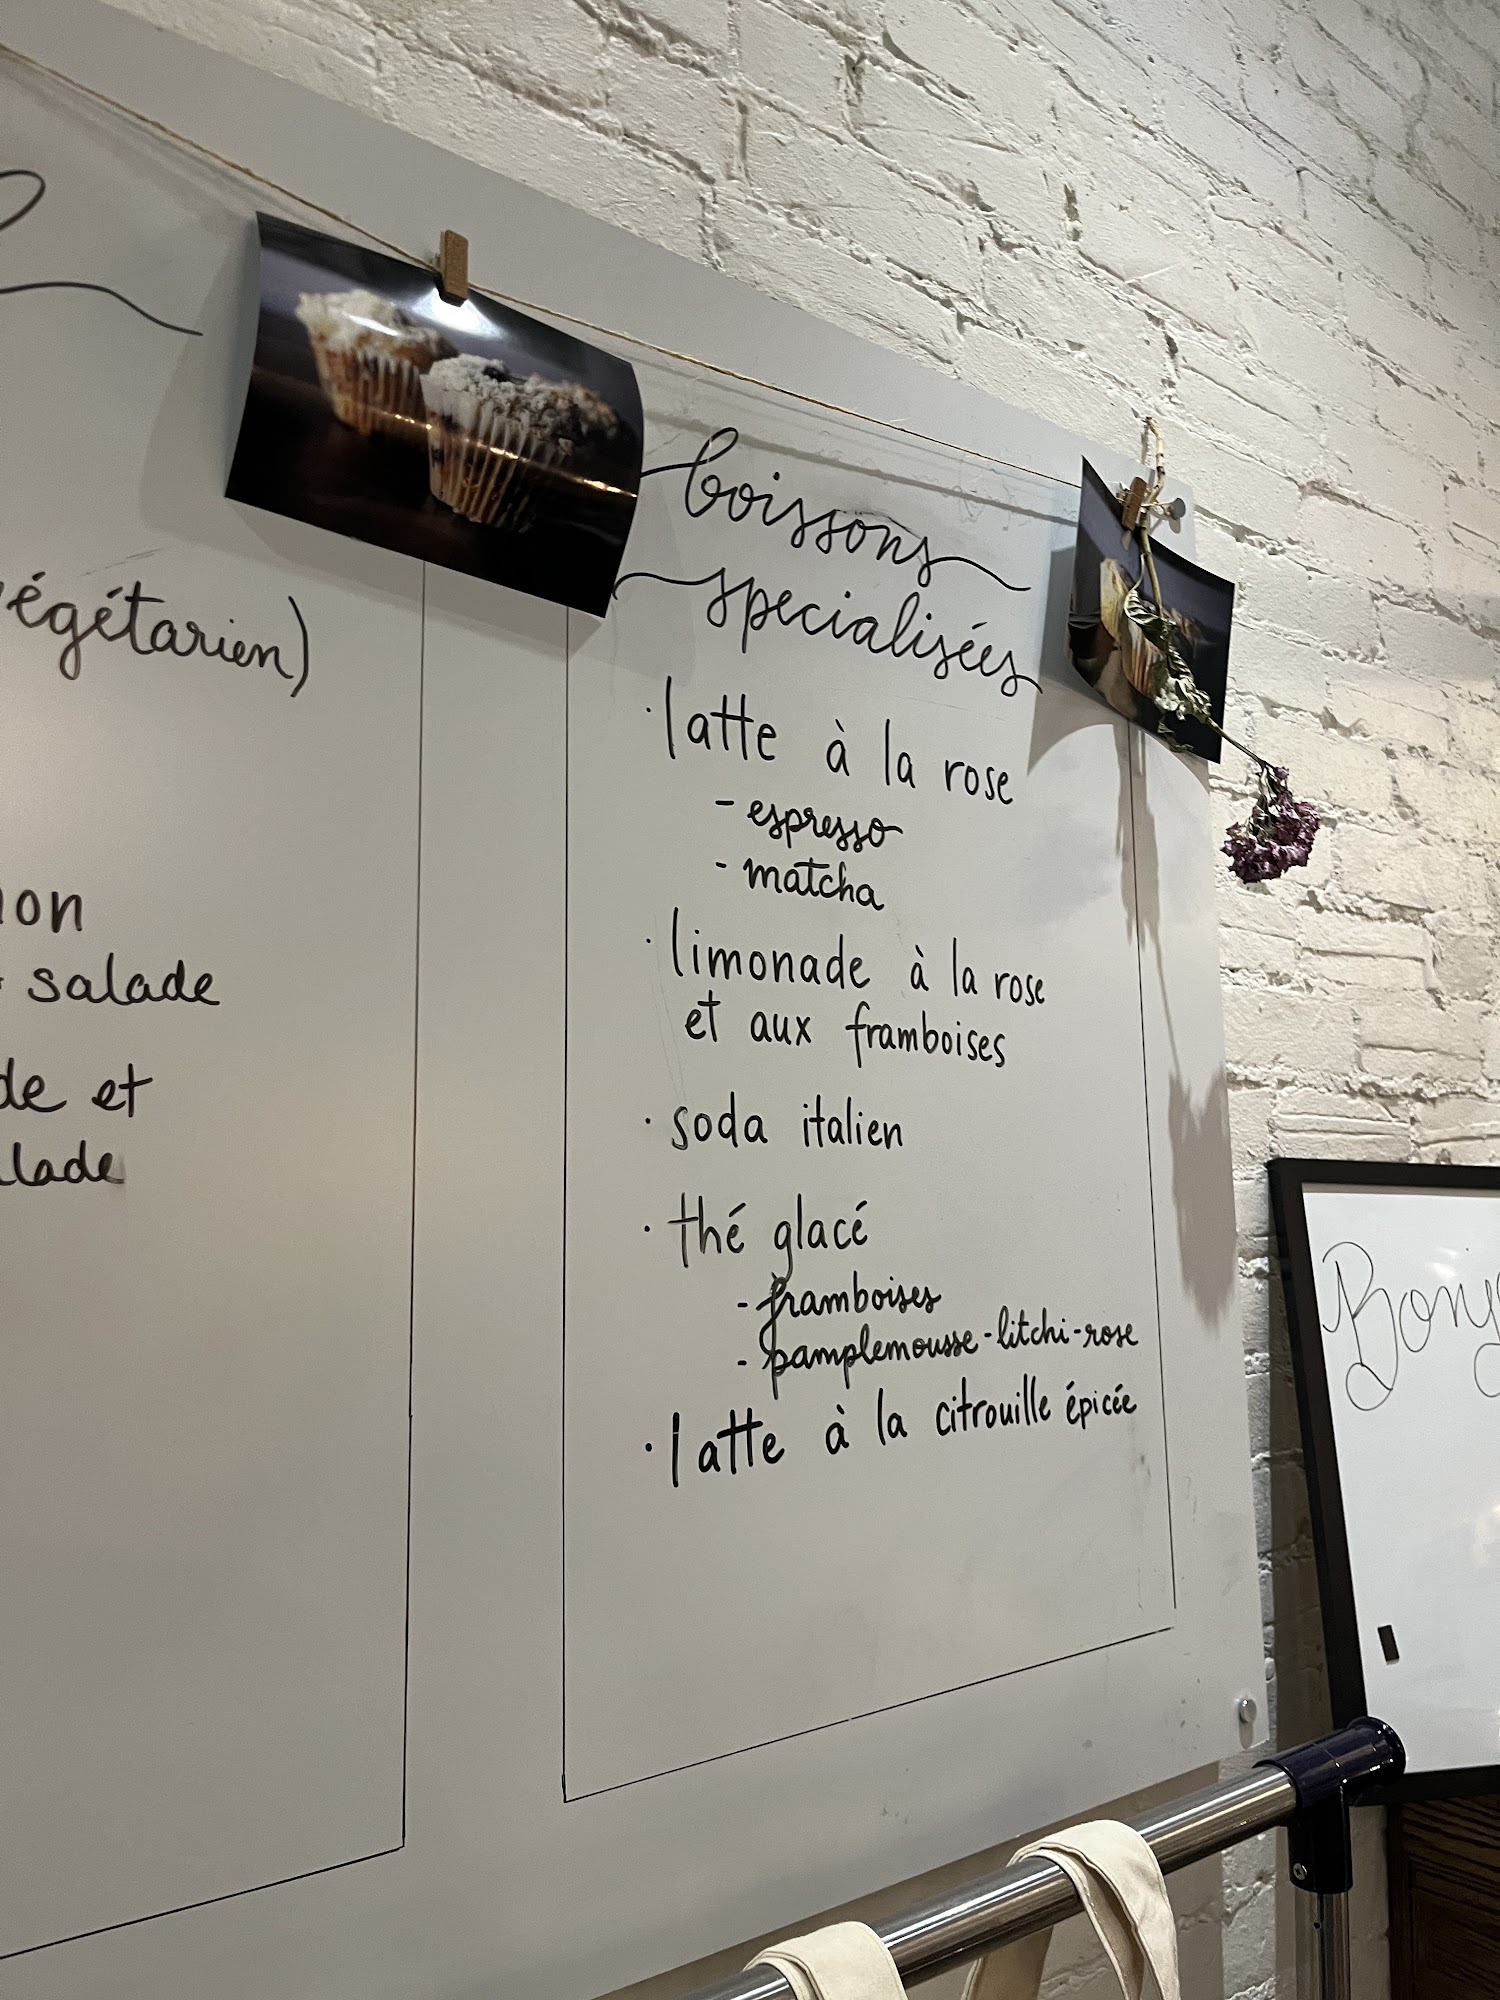 salade
et
boissons
specialisées
· latte à la rose
- espresso
- matcha
· limonade à la rose
et aux framboises
· soda italien
· thé glacé
- framboises
- pamplemousse-litchi-rose
· latte à la citrouille épicée